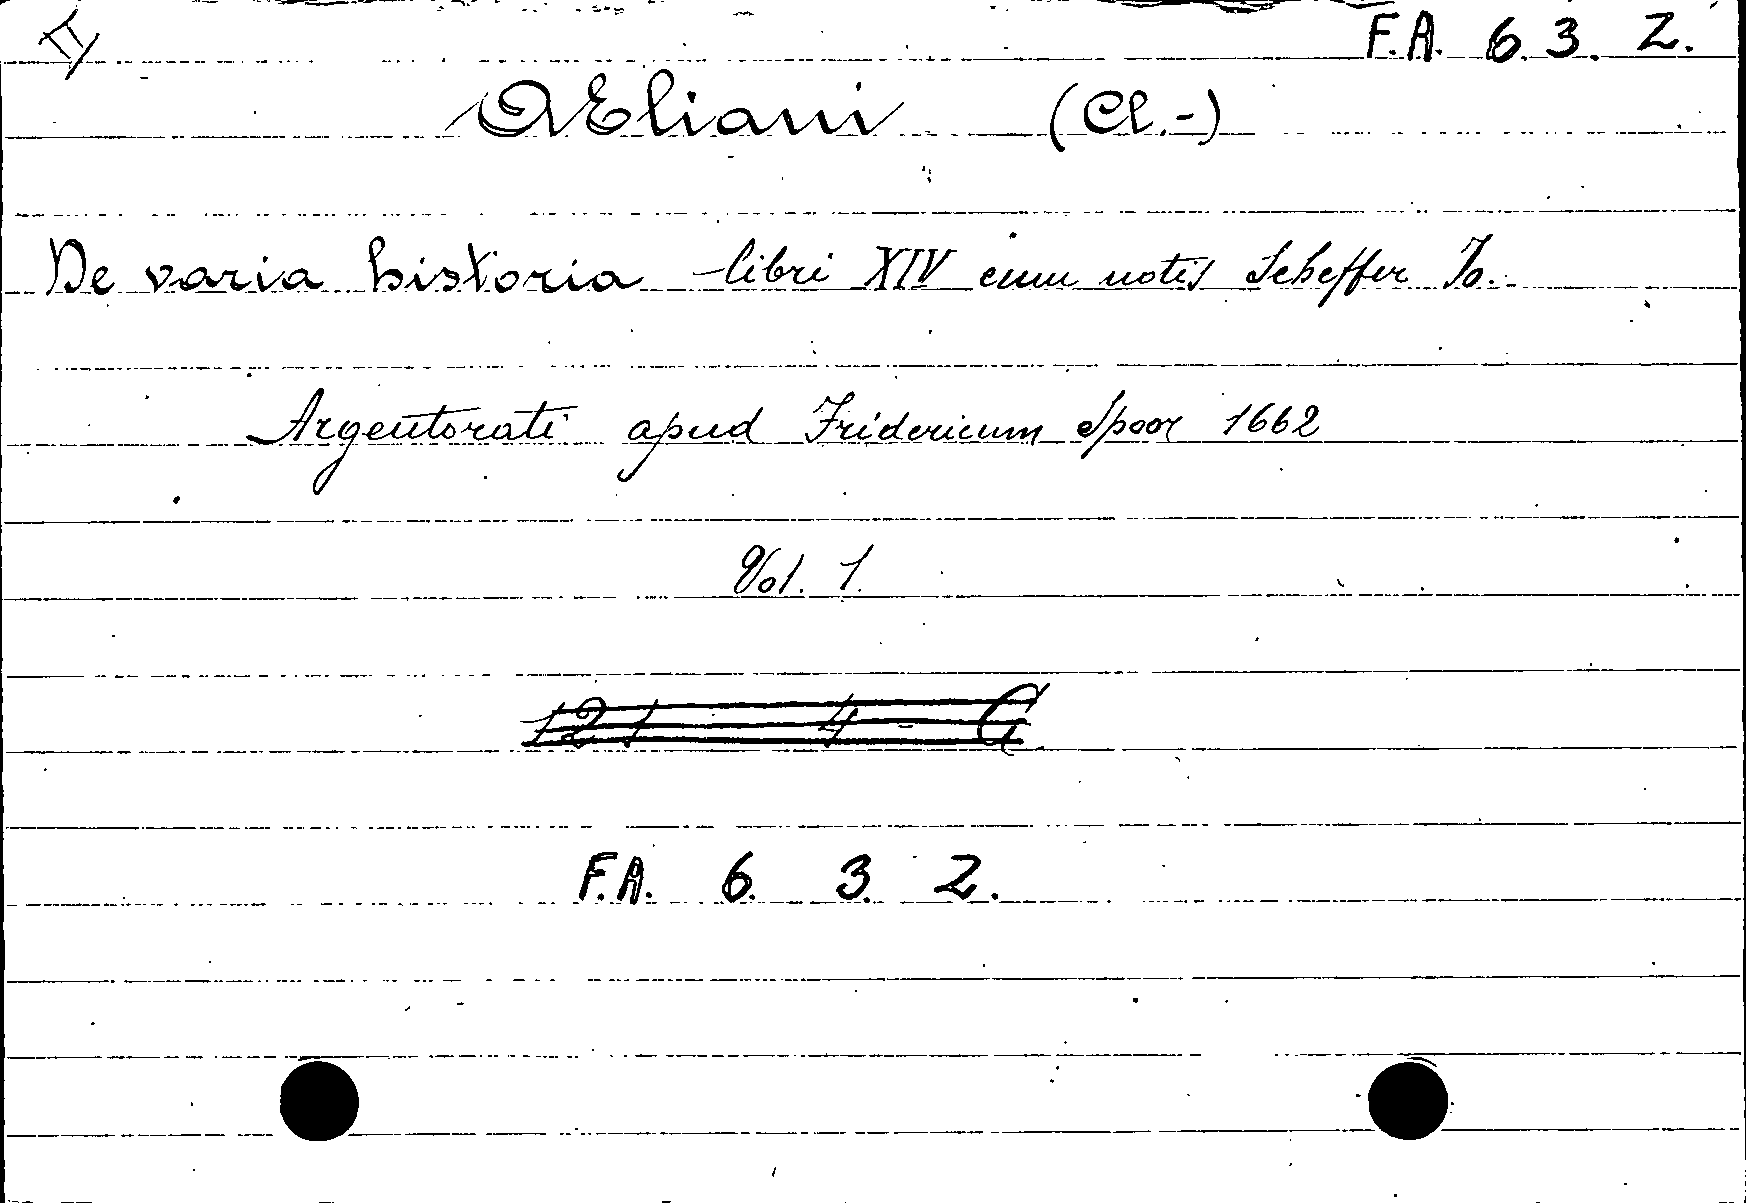 II F.A. 6. 3. 2.
AEliani (Cl.-)
De varia historia - libri XIV cum notis Scheffer Jo.
Argentorati apud Fridericum Spoor 1662
Vol. 1.
121 4 - G
F.A. 6. 3. 2.